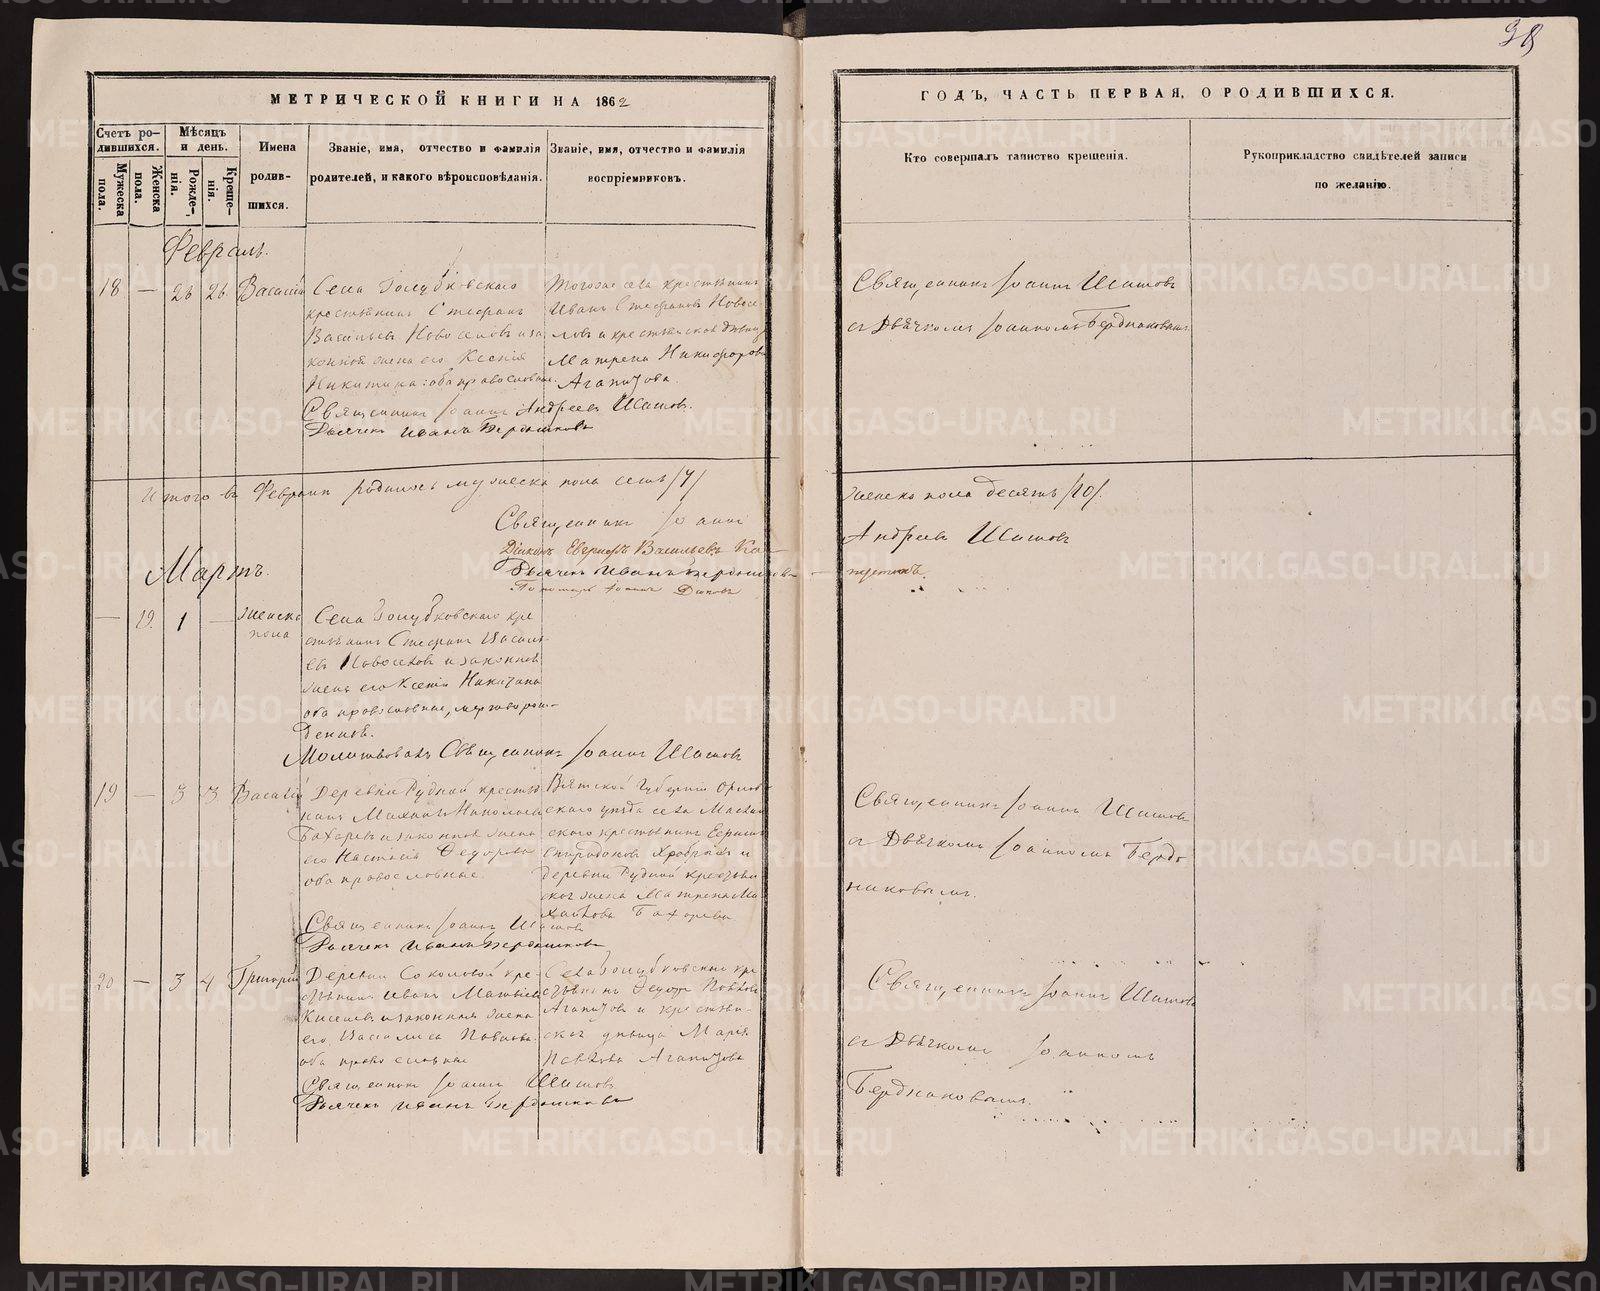 38
МЕТРИЧЕСКОЙ КНИГИ НА 1862
ГОДЪ, ЧАСТЬ ПЕРВАЯ, О РОДИВШИХСЯ.
Счетъ родившихся.
Мужеска пола.
Женска пола.
Мѣсяцъ и день.
Рожденія.
Крещенія.
Имена родившихся.
Званіе, имя, отчество и фамилія
родителей, и какого вѣроисповѣданія.
Званіе, имя, отчество и фамилія
воспріемниковъ.
Кто совершалъ таинство крещенія.
Рукоприкладство свидѣтелей записи
по желанію.
Февраль.
18 — 26 26 Василій
Села Голубковскаго
крестьянинъ Стефанъ
Васильевъ Новоселовъ и за
конная жена его Ксенія
Никитина: оба православные.
Тогоже села крестьянинъ
Иванъ Стефановъ Новосе
ловъ и крестьянская дѣвица
Матрена Никифорова
Агапитова.
Священникъ Іоаннъ Андреевъ Шишовъ.
Дьячекъ Иванъ Бердниковъ
Священникъ Іоаннъ Шишовъ
съ Дьячкомъ Іоанномъ Бердниковымъ.
Итого въ Февралѣ родилось мужеска пола семь /7/
женска пола десять /10/.
Священникъ Іоаннъ
Андреевъ Шишовъ
Діаконъ Васильевъ
Дьячекъ Иванъ Бердниковъ
Пономарь Іоаннъ
Мартъ.
— 19. 1 — женска
пола
Села Голубковскаго кре
стьянинъ Стефанъ Василь
евъ Новоселовъ и законная
жена его Ксенія Никитина
оба православные, мертворож-
денная.
Молитвовалъ Священникъ Іоаннъ Шишовъ
19 — 3 3 Василій
Деревни Рудной крестья
нинъ Михаилъ Николаевъ
Бахаревъ и законная жена
его Настасія Федорова
оба православные.
Вятской Губерніи Орлов
скаго уѣзда села
скаго крестьянинъ
Спиридоновъ Храбрыхъ и
деревни Рудной крестьян
ская жена Матрена Ми
хайлова Бахарева
Священникъ Іоаннъ Шишовъ
Дьячекъ Иванъ Бердниковъ
Священникъ Іоаннъ Шишовъ
съ Дьячкомъ Іоанномъ Бердни
никовымъ.
20 — 3 4 Григорій
Деревни Соколовой кре-
стьянинъ Иванъ Матвѣевъ
Киселевъ и законная жена
его Василиса Павлова
оба православные
Села Голубковскаго кре
стьянинъ Федоръ Павловъ
Агапитовъ и крестьян-
ская дѣвица Марія
Павлова Агапитова
Священникъ Іоаннъ Шишовъ
Дьячекъ Иванъ Бердниковъ
Священникъ Іоаннъ Шишовъ
съ Дьячкомъ Іоанномъ
Бердниковымъ.
METRIKI.GASO-URAL.RU